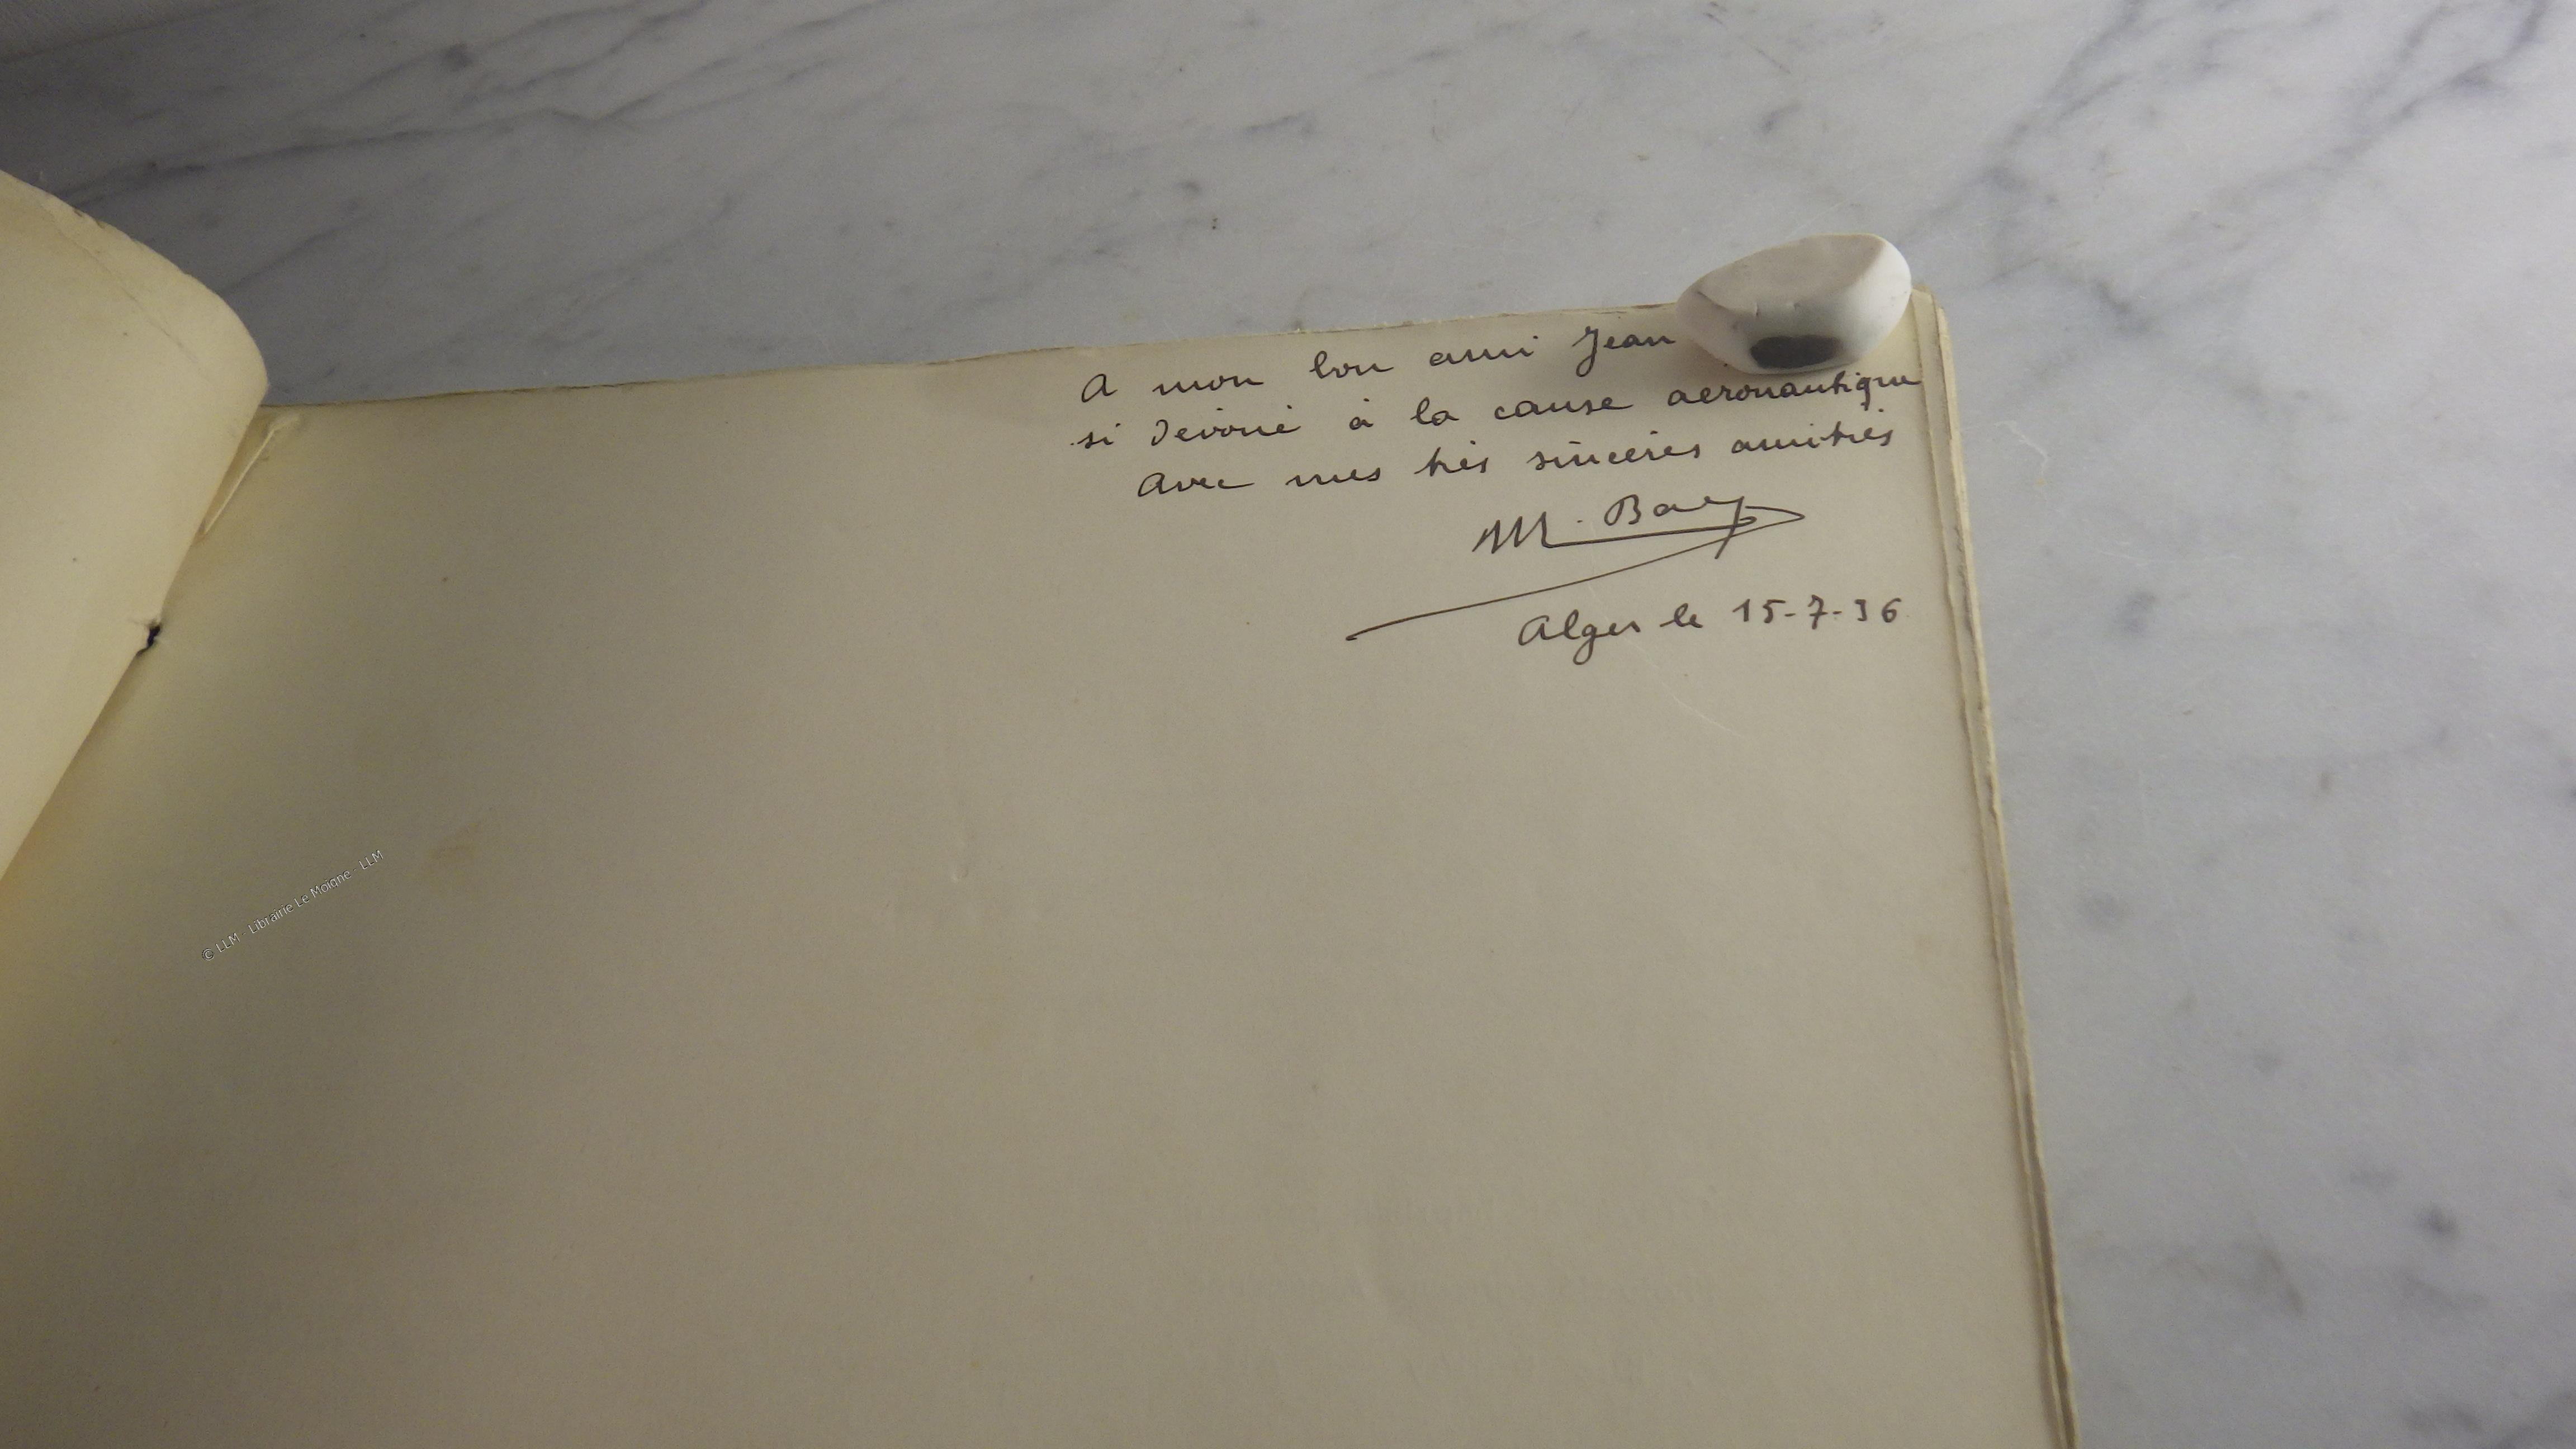 A mon bon ami Jean
si dévoué à la cause aéronautique
Avec mes très sincères amitiés
M.
Alger le 15-7-36
© LLM - Librairie Le Moigne - LLM